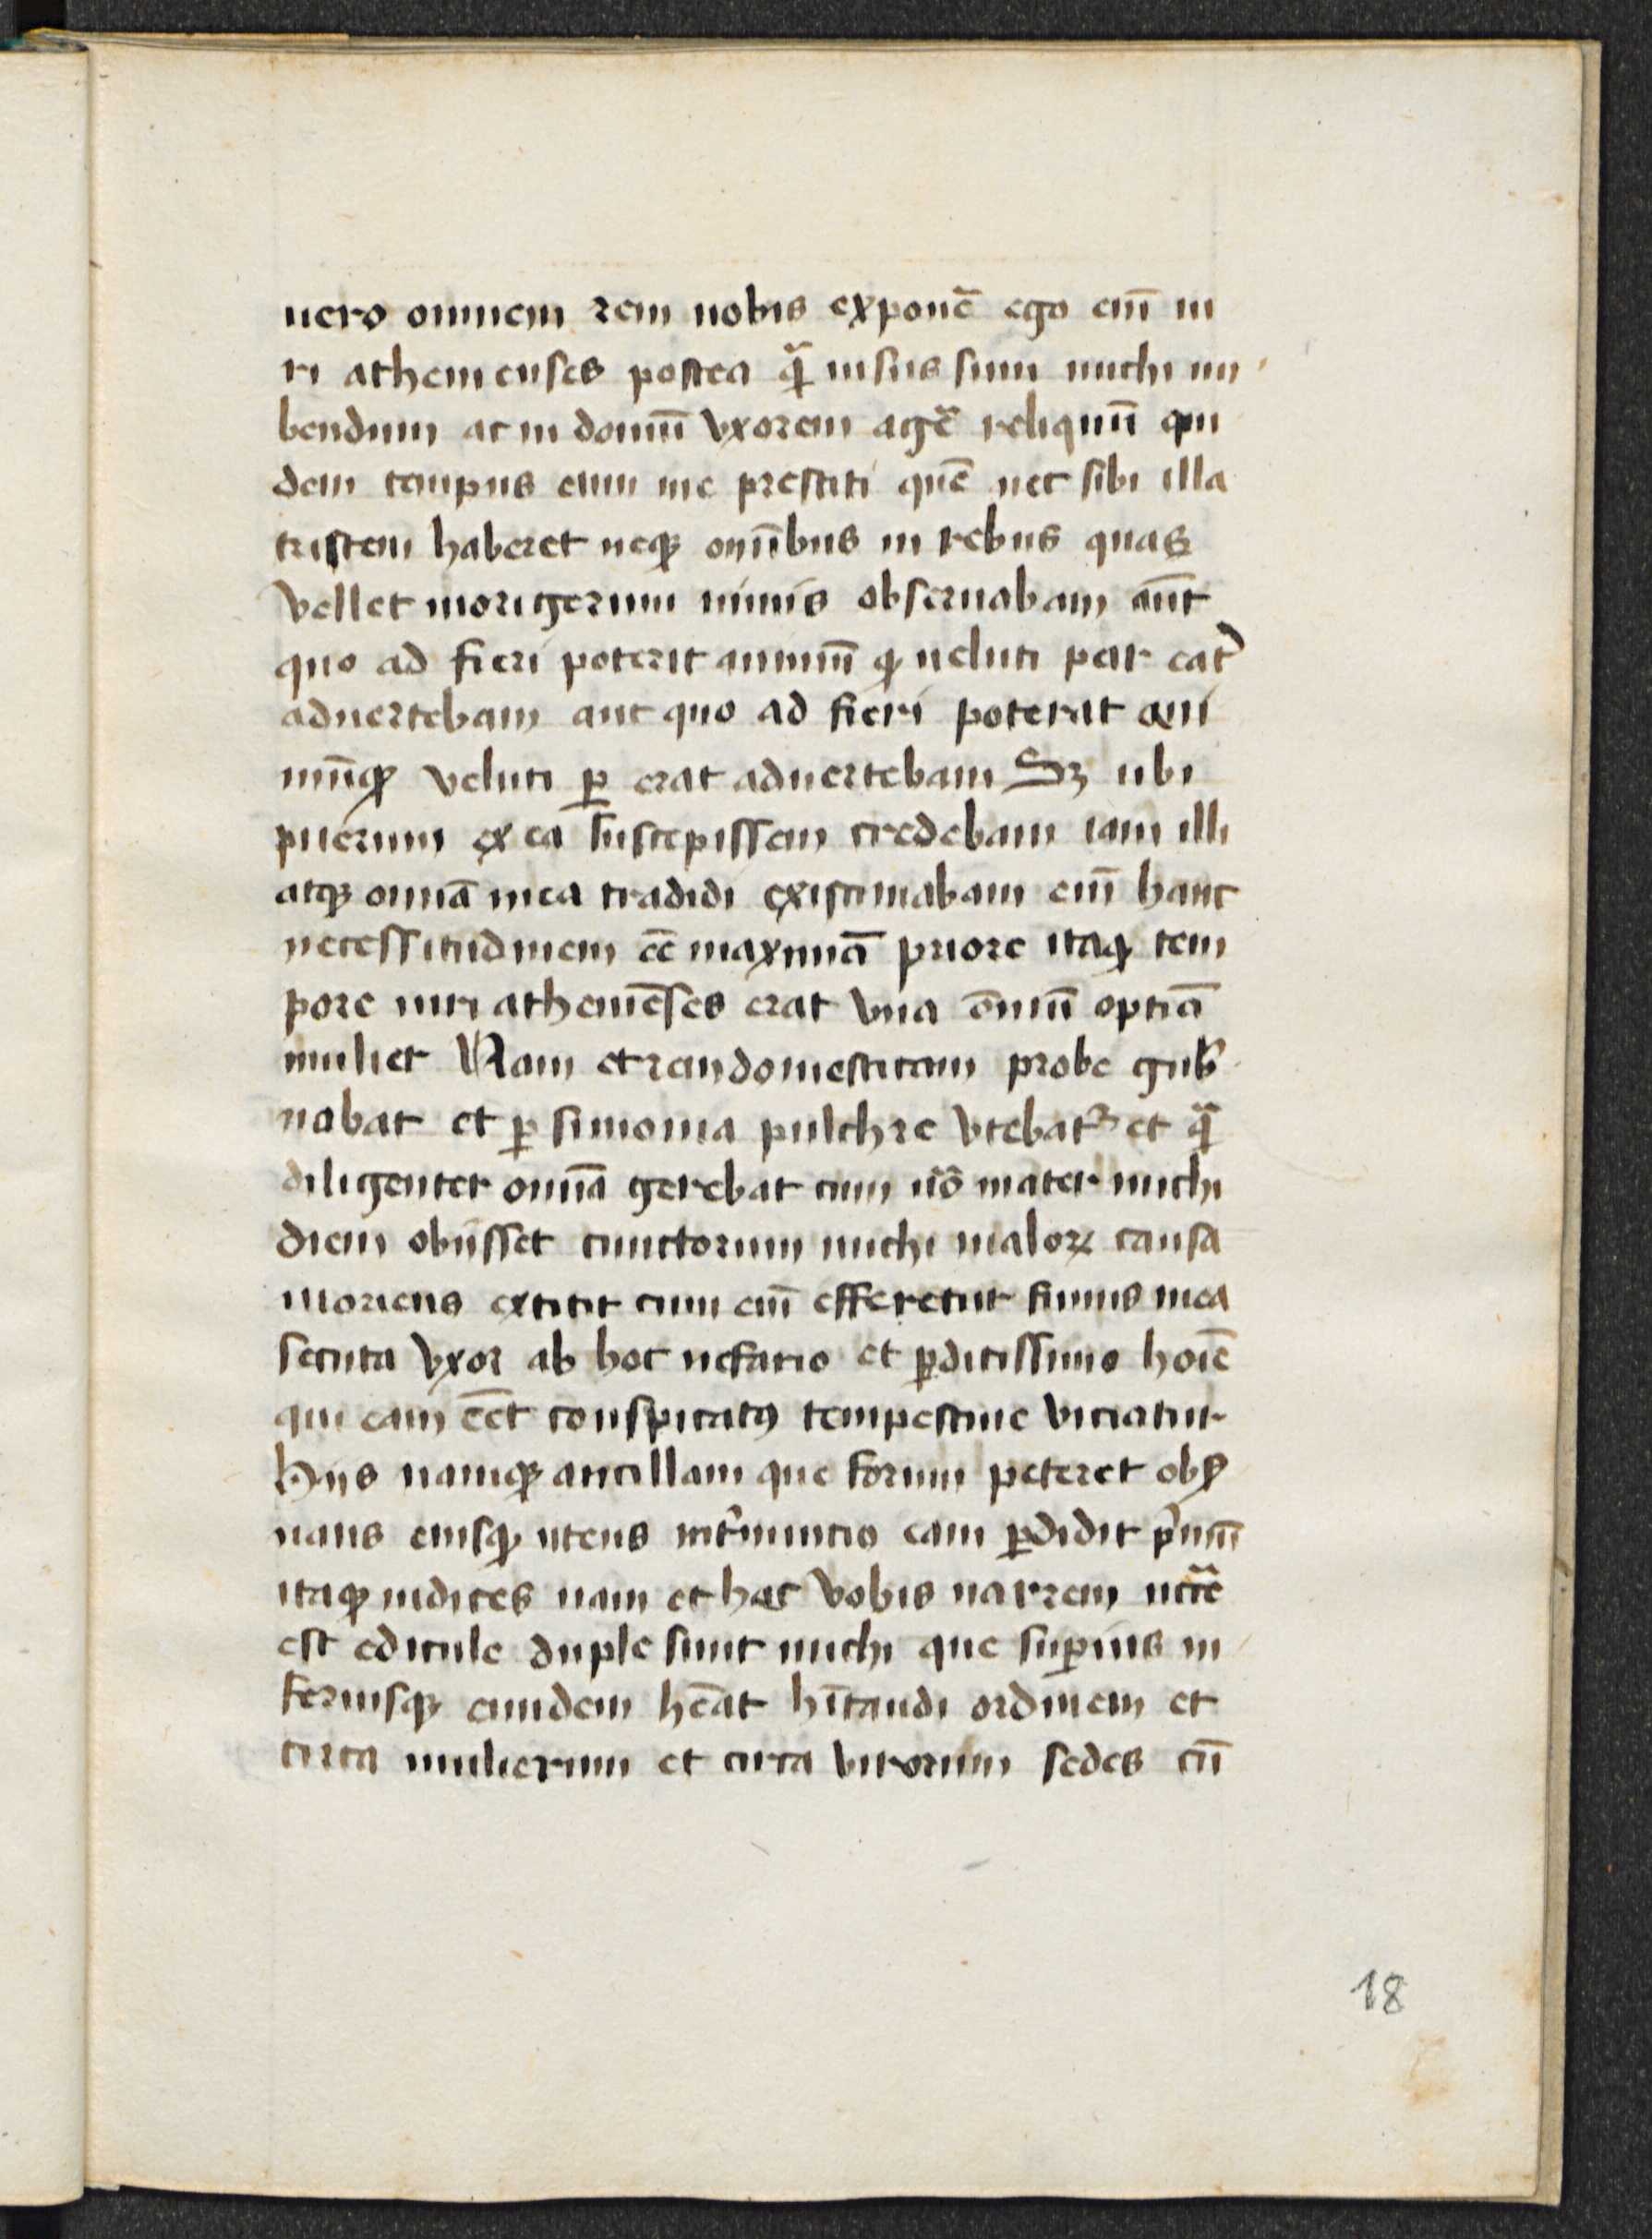 uero omnem rem uobis exponē ego enī ui
ri athenienses postea qᷓ uisus sum michi nu
bendum ac in domū vxorem agē reliquū qui
dem tempus eum me prestiti quē nec sibi illa
tristem haberet neqꝫ omībus in rebus quas
vellet morigerum nimis obseruabam aūt
quo ad fieri poterit animū qꝫ ueluti par erat̉
aduertebam aut quo ad fieri poterat ani
mūqꝫ veluti ꝑ erat aduertebam Sꝫ ubi
puerum ex ea suscepissem credebam iam illi
atqꝫ omnia mea tradidi existimabam enī hanc
necessitudinem eē maximā priore itaqꝫ tem
pore uiri atheniēses erat vna ōmniū optiā
mulier Nam et rem domesticam probe gub̉
nabat et ꝑsimonia pulchre vtebat᷑ et qᷓ
diligenter omnia gerebat cum uō mater michi
diem obiisset cunctorum michi malorꝝ causa
moriens extitit cum enī efferetur funus mea
secuta vxor ab hoc nefario et ꝑditissimo hoīe
qui eam eēt conspicatꝰ tempestiue viciatur
Hijs namqꝫ ancillam que forum peteret obẜ
uans eiusqꝫ utens int̉nuncio eam ꝑdidit pͥmū
itaqꝫ iudices nam et hac vobis narrem nccē
est edicule duple sunt michi que suꝑius in
feriusqꝫ eundem hēāt hītandi ordinem et
circa mulierum et circa virorum sedes cū
18